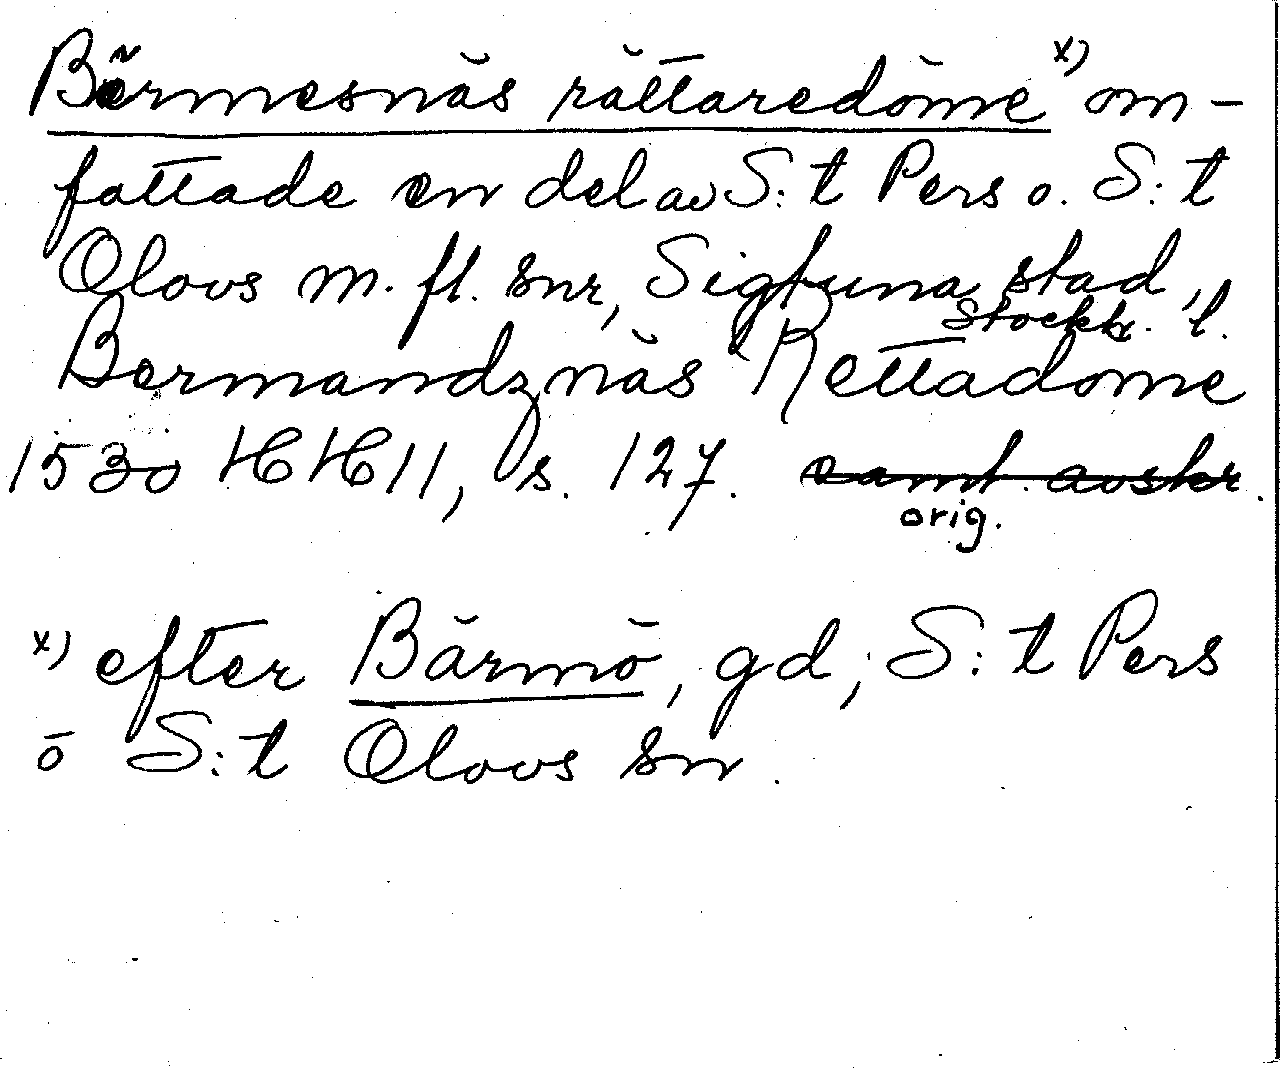 Bärmesnäs rättaredöme x) om-
fattade en del av S:t Pers o. S:t
Olovs m. fl. snr, Sigtuna stad,
Stockh. l.
Bermandznäs Rettadöme
1530 HH 11, s. 127.
orig.
x) efter Bärmö, gd, S:t Pers
o S:t Olovs sn.